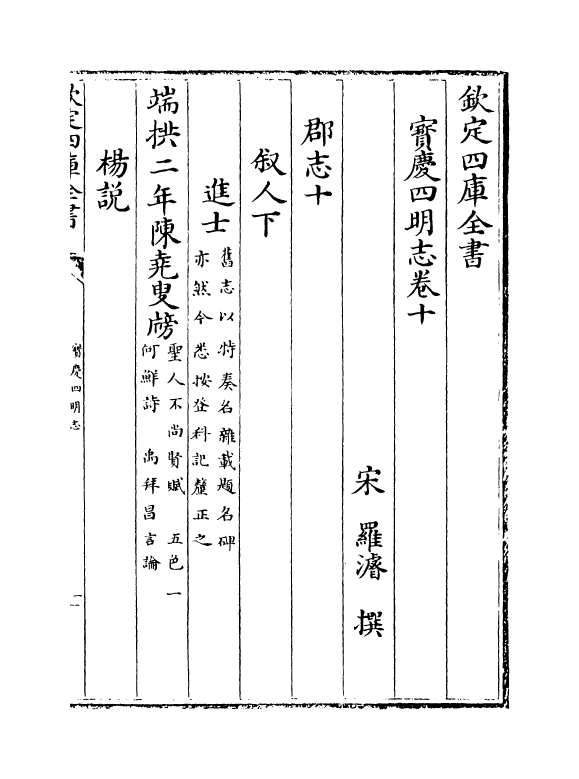 欽定四庫全書
寶慶四明志卷十
宋 羅濬 撰
郡志十
叙人下
進士
舊志以特奏名雜載題名碑
亦然今悉按登科記釐正之
端拱二年陳堯叟牓
聖人不尚賢賦 五色一
何鮮詩 禹拜昌言論
楊説
欽定四庫全書
寶慶四明志